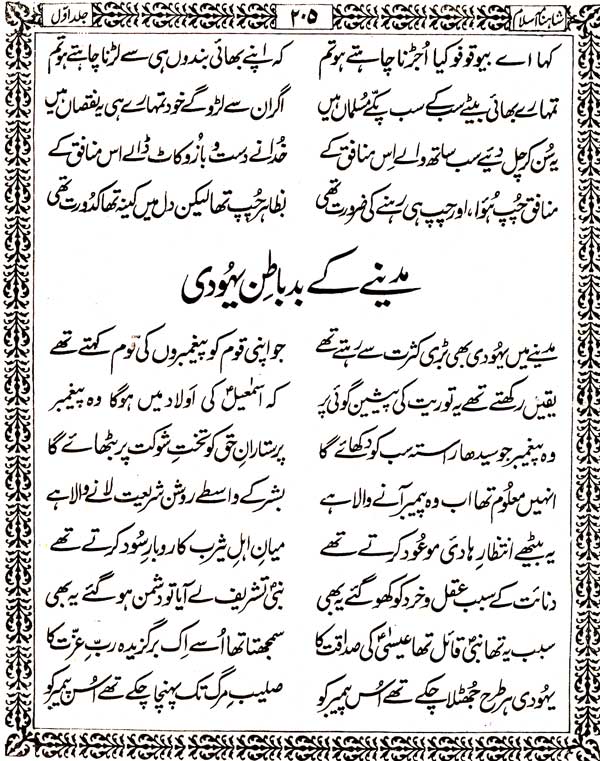 شاہنامہ اسلام ۲۰۵ جلد اوّل
کہا اے بیوقوفو کیا اُجڑنا چاہتے ہو تم کہ اپنے بھائی بندوں ہی سے لڑنا چاہتے ہو تم
تمہارے بھائی بیٹے سب کے سب پکّے مُسلماں ہیں اگر ان سے لڑو گے خود تمہارے ہی یہ نقصان ہیں
یہ سُن کر چل دیئے سب ساتھ والے اِس منافق کے خُدا نے دست و بازُو کاٹ ڈالے اس منافق کے
منافق چُپ ہُوا، اور چپ ہی رہنے کی ضرورت تھی بظاہر چُپ تھا لیکن دل میں کینہ تھا کدُورت تھی
مدینے کے بد باطِن یہُودی
مدینے میں یہُودی بھی بڑی کثرت سے رہتے تھے جو اپنی قوم کو پیغمبروں کی قوم کہتے تھے
یقیں رکھتے تھے یہ توریت کی پیشین گوئی پر کہ اسمٰعیلؑ کی اَولاد میں ہوگا وہ پیغمبر
وہ پیغمبر جو سیدھا راستہ سب کو دکھائے گا پرستارانِ حق کو تختِ شوکت پر بٹھائے گا
انہیں معلوم تھا اب وہ پیمبر آنے والا ہے بشر کے واسطے روشن شریعت لانے والا ہے
یہ بیٹھے انتظارِ ہادیِ موعُود کرتے تھے میانِ اہلِ یثرب کاروبارِ سُود کرتے تھے
دنائت کے سبب عقل و خرد کو کھو گئے یہ بھی نبیؐ تشریف لے آیا تو دشمن ہو گئے یہ بھی
سبب یہ تھا نبیؐ قائل تھا عیسیٰؑ کی صداقت کا سمجھتا تھا اُسے اِک برگزیدہ ربِّ عزّت کا
یہودی ہر طرح جھٹلا چکے تھے اُس پیمبر کو صلیبِ مرگ تک پہنچا چکے تھے اُس پیمبر کو